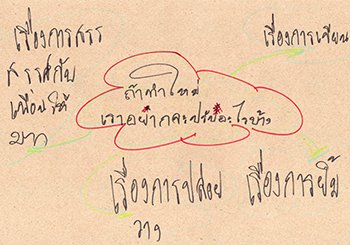 เรื่องการสรร
สรรค์กับ
เพื่อนให้
มาก
เรื่องการเขียน
ถ้าทำใหม่
เราอยากจะปรับอะไรบ้าง
เรื่องการปล่อย
วาง
เรื่องการยิ้ม